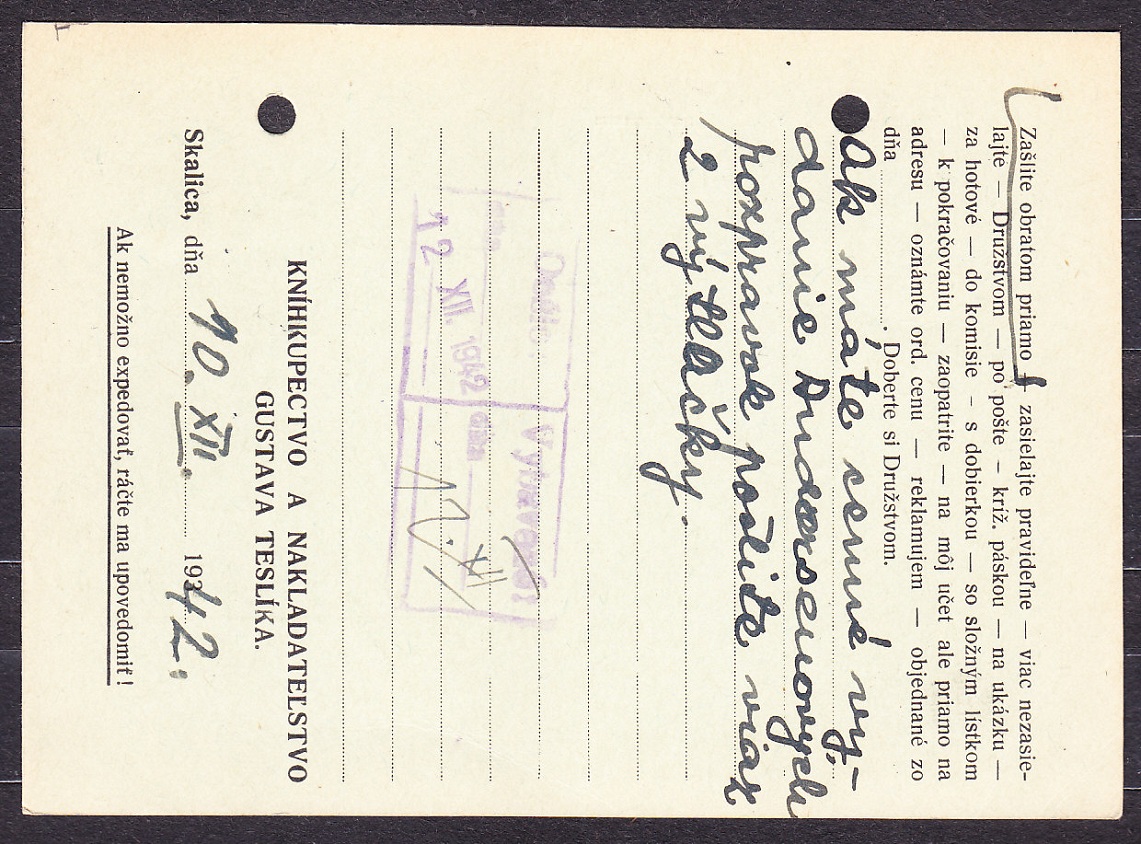 Zašlite obratom priamo — zasielajte pravideľne — viac nezasie-
lajte — Družstvom — po pošte — kríž. páskou — na ukázku —
za hotové — do komisie — s dobierkou — so složným lístkom
— k pokračovaniu — zaopatrite — na môj účet ale priamo na
adresu — oznámte ord. cenu — reklamujem — objednané zo
dňa .................... Doberte si Družstvom.
Ak máte cenné vy-
danie Andersenových
rozpravok pošlite viaz
2 výtlačky.
Došlo: Vybavené:
dňa 12 XII. 1942 dňa
XII
KNÍHKUPECTVO A NAKLADATEĽSTVO
GUSTAVA TESLÍKA.
Skalica, dňa 10. XII. 1942.
Ak nemožno expedovať, ráčte ma upovedomiť!